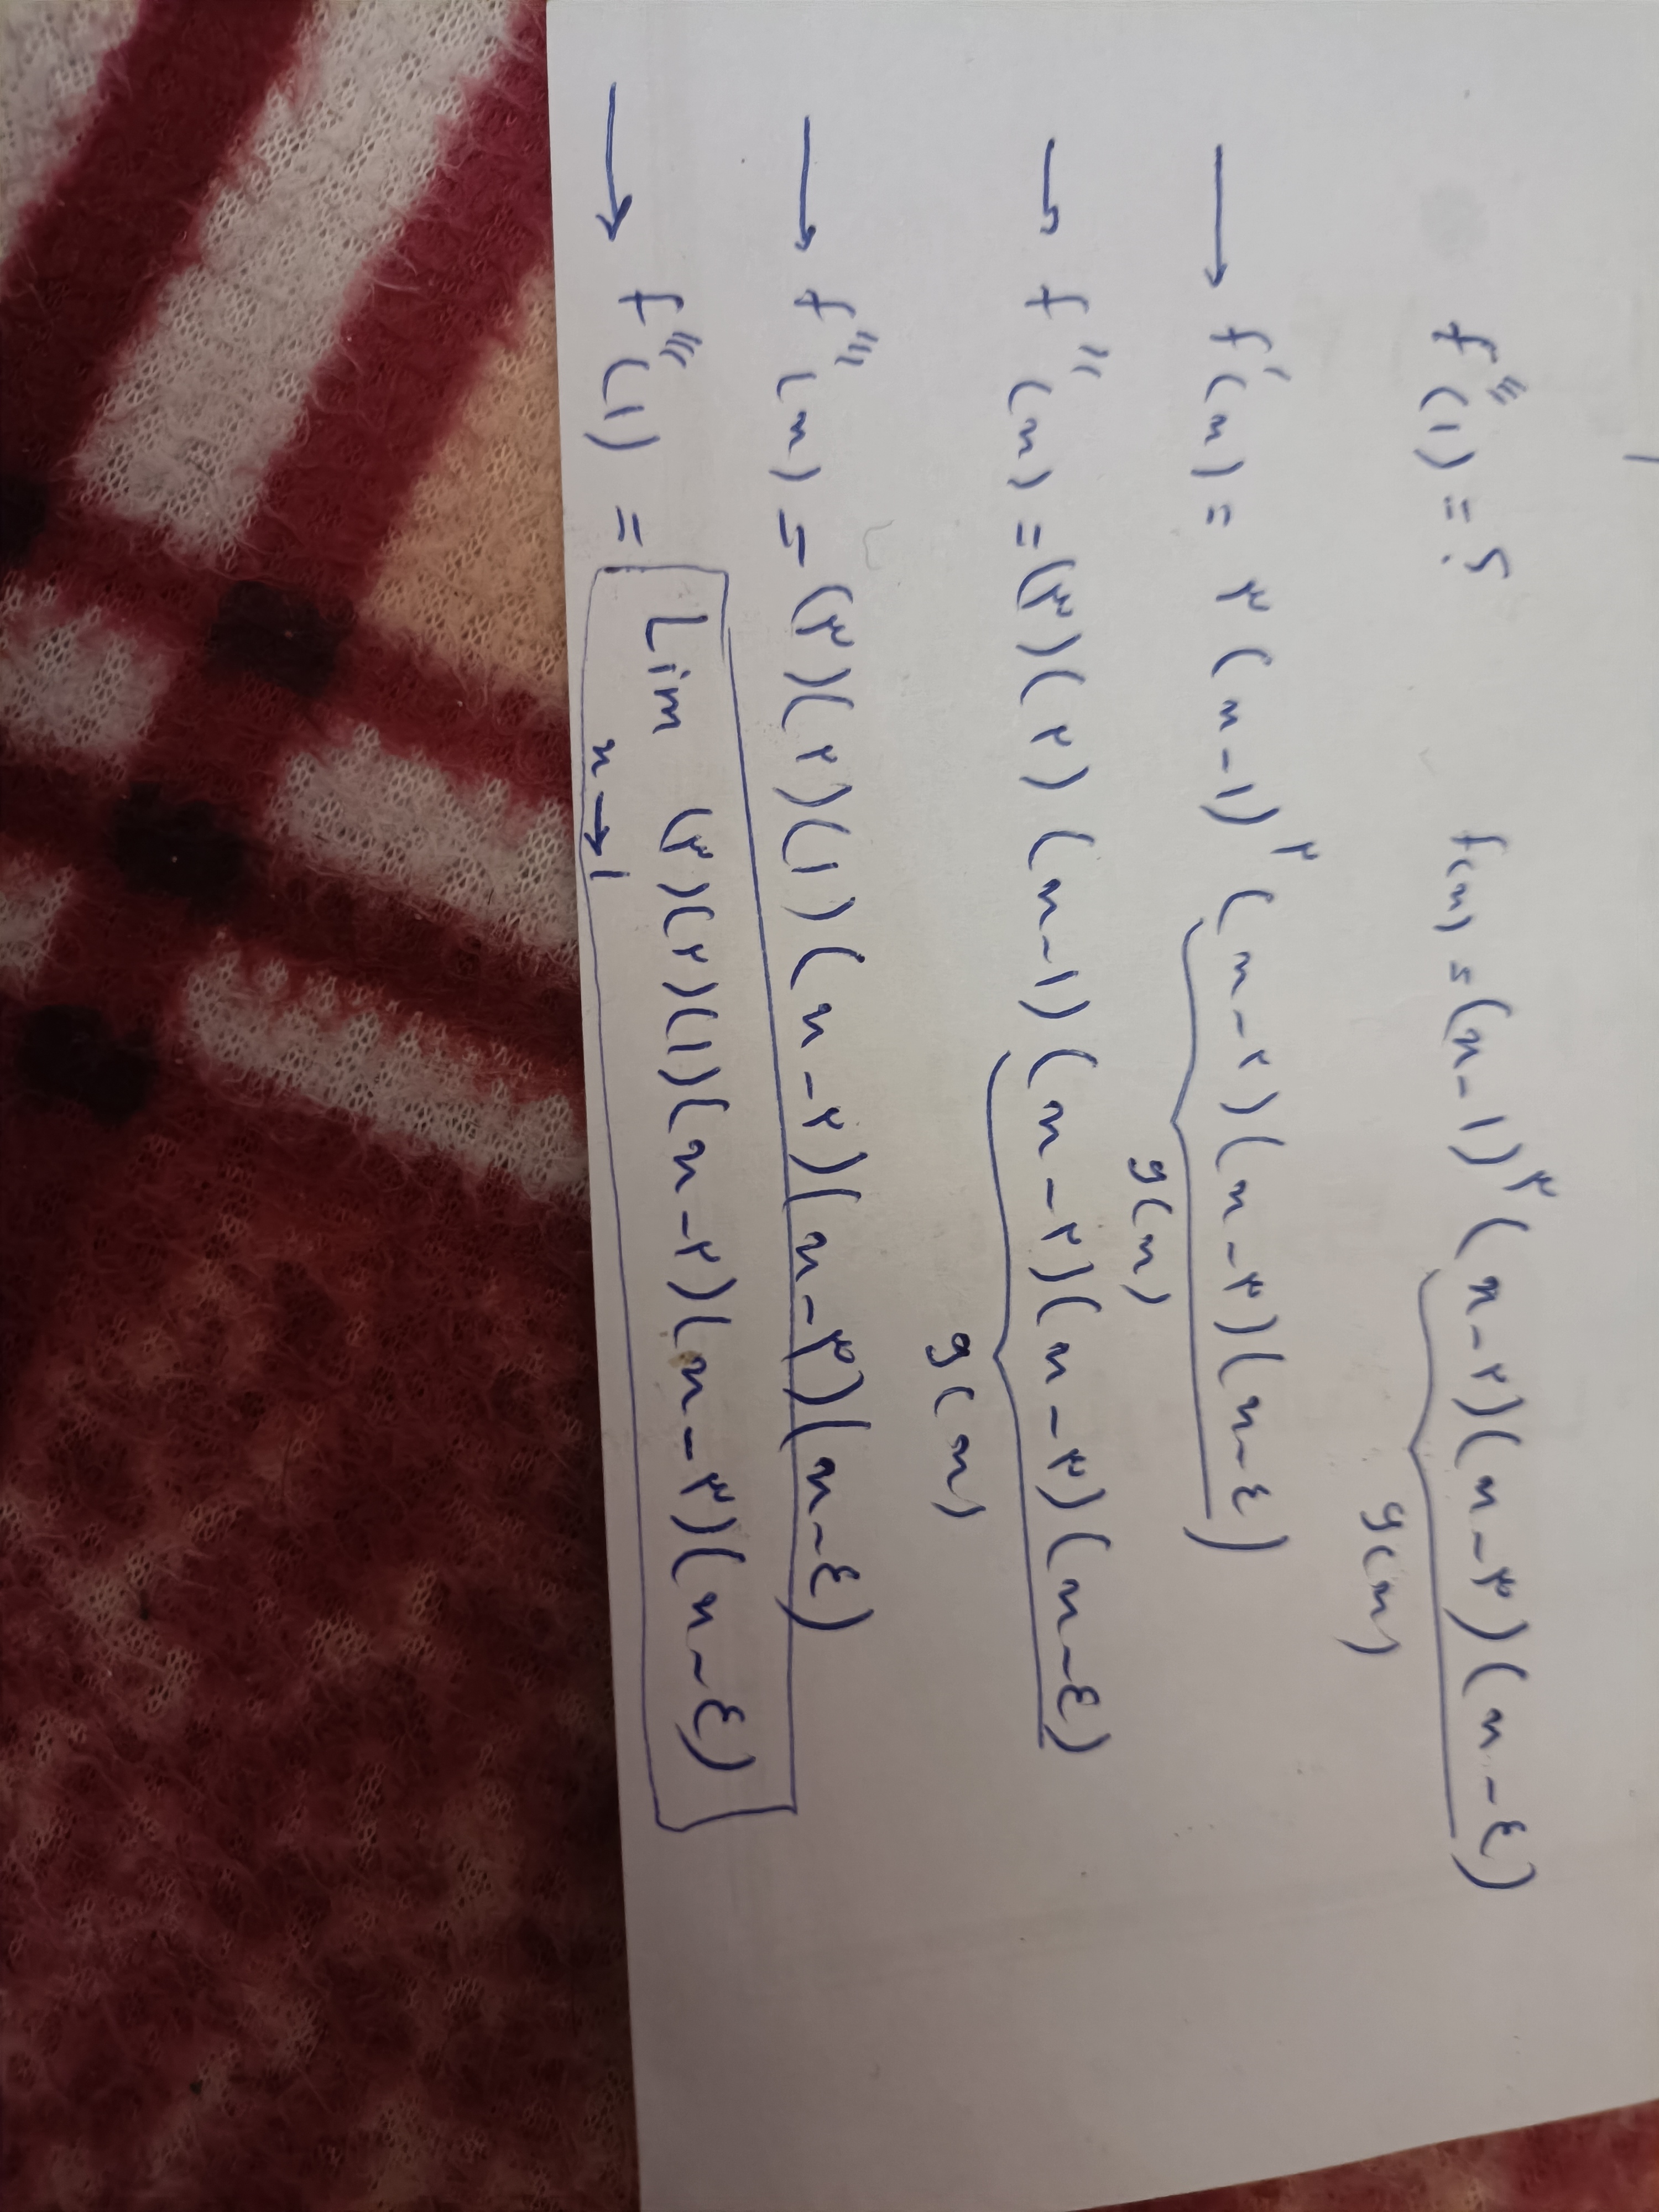 f'''(1) = ? f(x) = (x-1)^۳ (x-۲)(x-۳)(x-۴)
g(x)
→ f'(x) = ۳(x-1)^۲ (x-۲)(x-۳)(x-۴)
g(x)
→ f''(x) = (۳)(۲)(x-1)(x-۲)(x-۳)(x-۴)
g(x)
→ f'''(x) = (۳)(۲)(1)(x-۲)(x-۳)(x-۴)
→ f'''(1) = Lim (۳)(۲)(1)(x-۲)(x-۳)(x-۴)
x→1